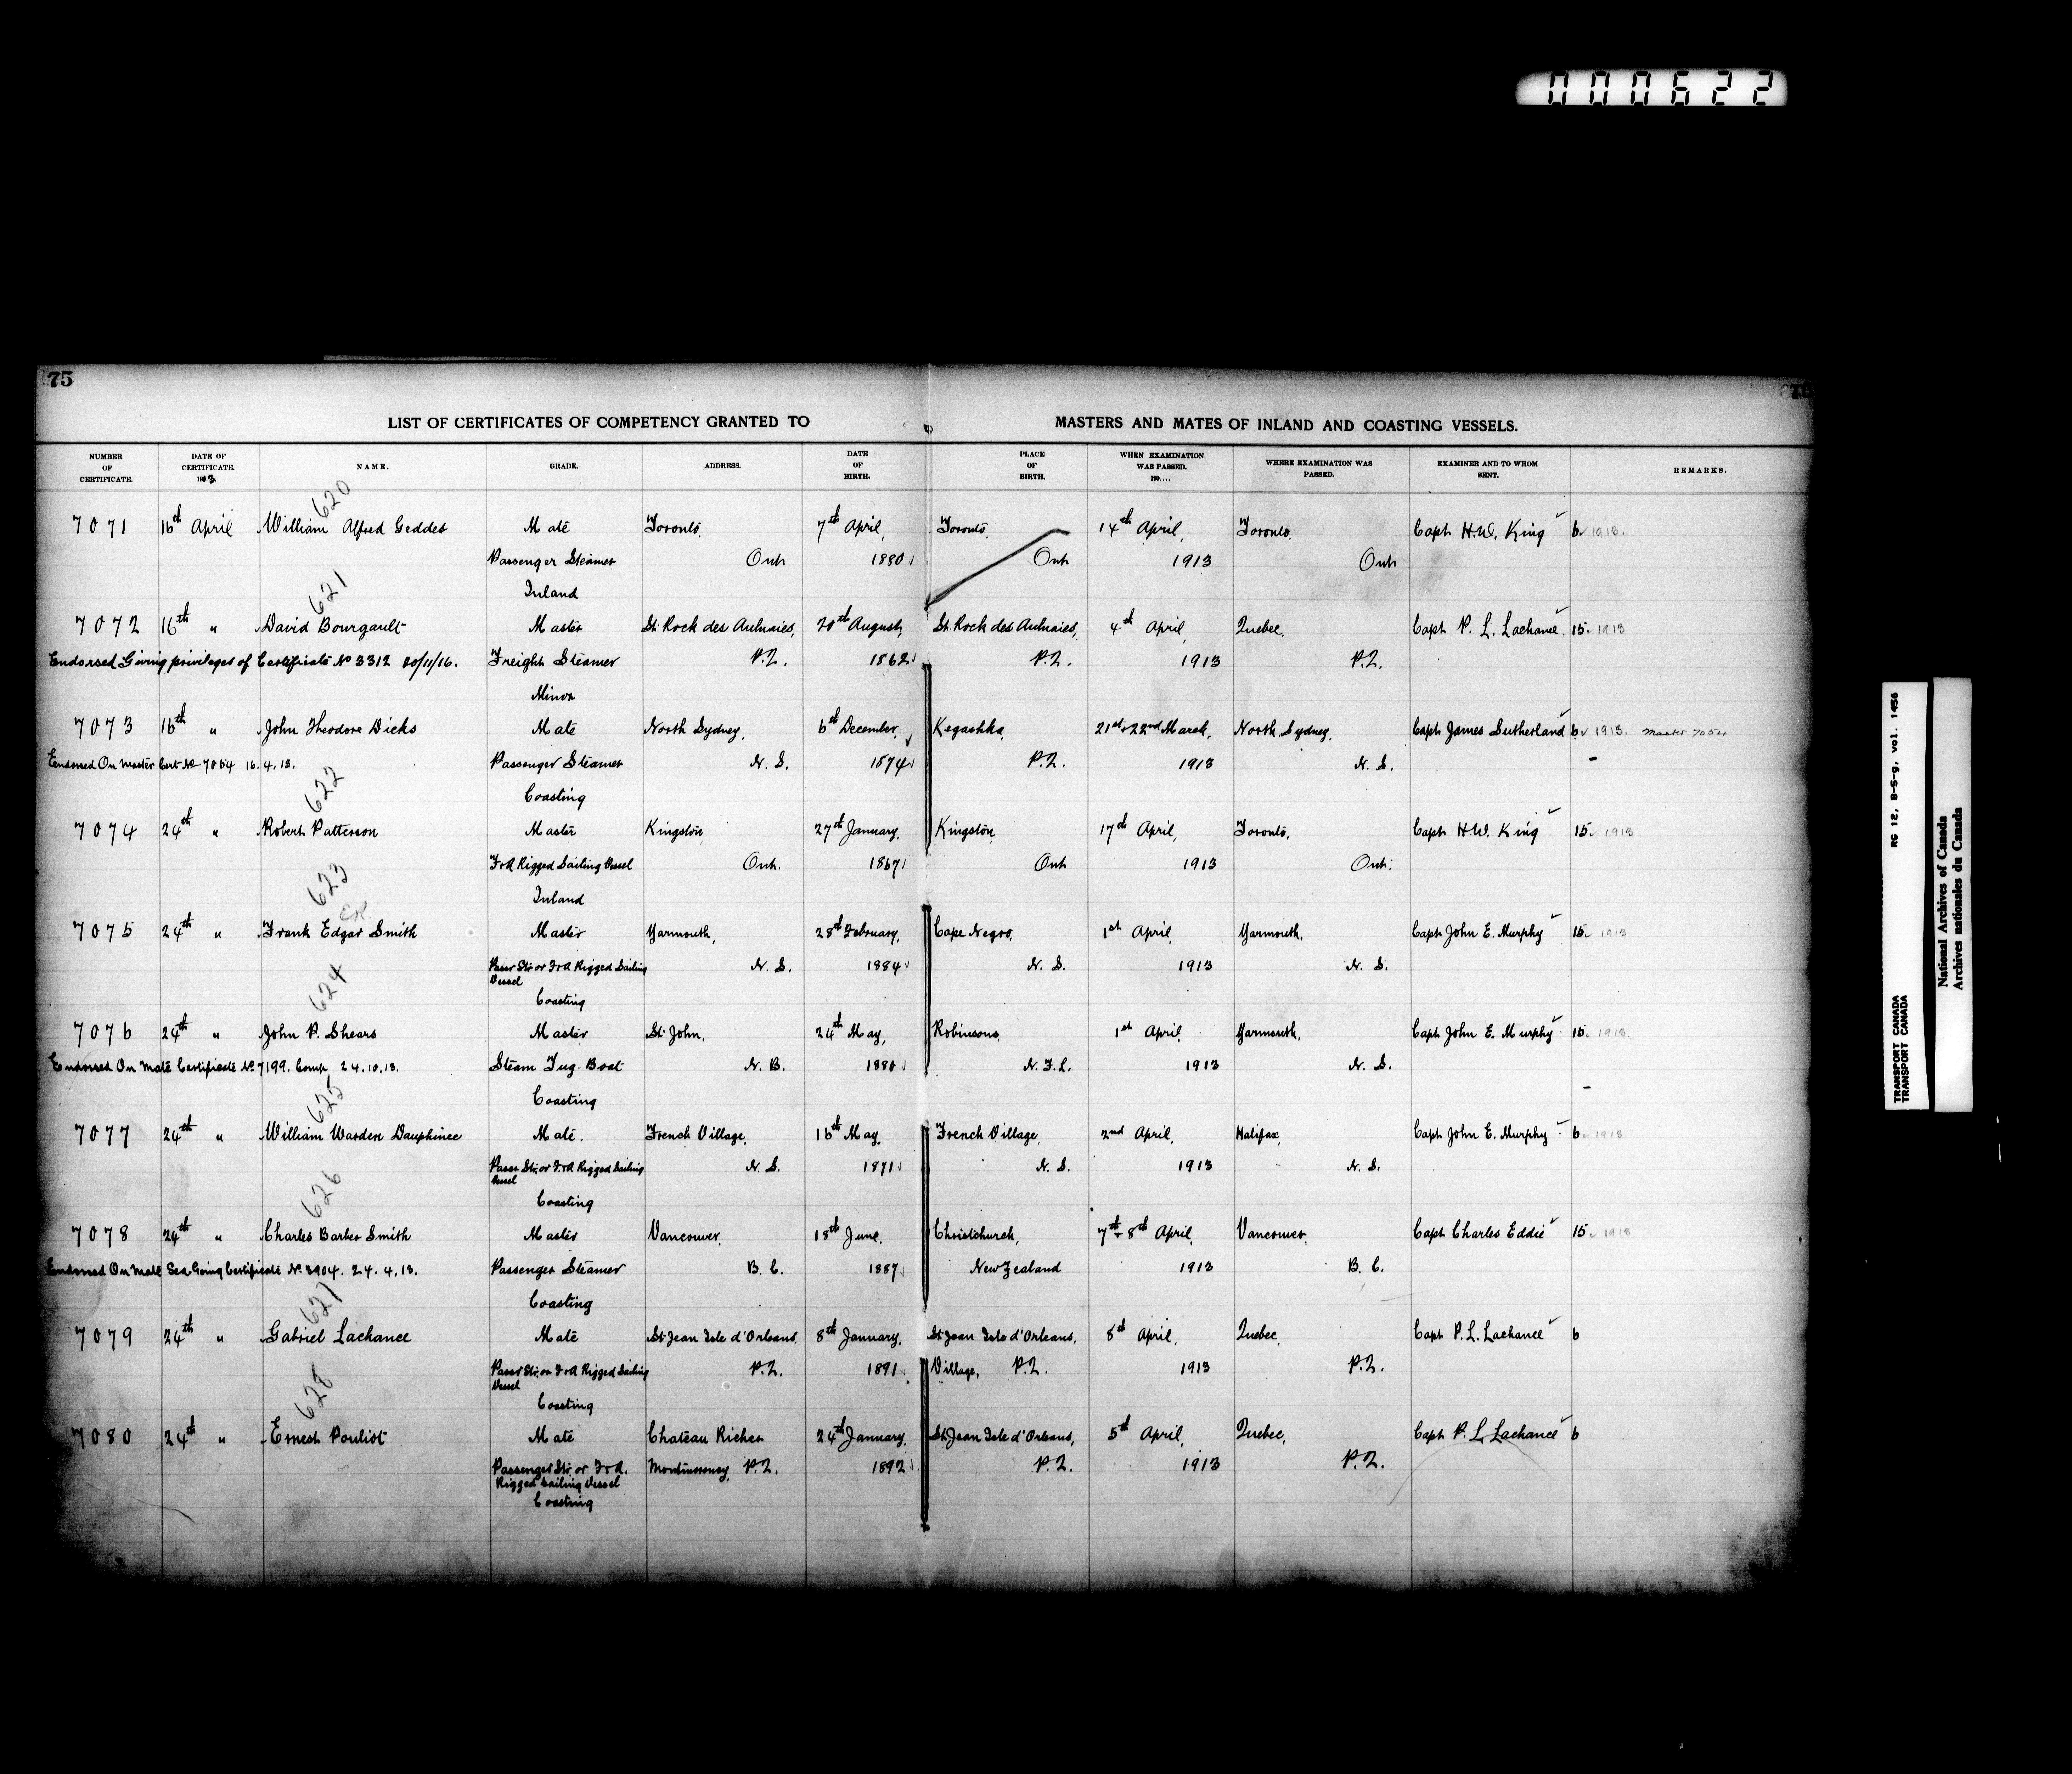 000622
75
LIST OF CERTIFICATES OF COMPETENCY GRANTED TO MASTERS AND MATES OF INLAND AND COASTING VESSELS.
NUMBER OF CERTIFICATE. DATE OF CERTIFICATE. 1913 NAME. GRADE. ADDRESS. DATE OF BIRTH. PLACE OF BIRTH. WHEN EXAMINATION WAS PASSED. 190.... WHERE EXAMINATION WAS PASSED. EXAMINER AND TO WHOM SENT. REMARKS.
620
7071 16th April William Alfred Geddes Mate Toronto, 7th April, Toronto, 14th April, Toronto, Capt H.W. King 6 1913.
Passenger Steamer Ont 1880 Ont 1913 Ont
Inland
621
7072 16th " David Bourgault Master St. Rock des Aulnaies, 20th August, St. Rock des Aulnaies, 4th April, Quebec, Capt P. L. Lachance 15 1913
Endorsed Giving privileges of Certificate No 3312 20/11/16. Freight Steamer P.Q. 1862 P.Q. 1913 P.Q.
Minor
7073 16th " John Theodore Dicks Mate North Sydney, 6th December, Kegashka, 21st & 22nd March, North Sydney, Capt James Sutherland 6 1913. Master 7054
Endorsed On Master Cert No 7054 16.4.13. Passenger Steamer N.S. 1874 P.Q. 1913 N.S.
Coasting
622
7074 24th " Robert Patterson Master Kingston, 27th January, Kingston, 17th April, Toronto, Capt H.W. King 15 1913
F & A Rigged Sailing Vessel Ont. 1867 Ont 1913 Ont.
Inland
623
7075 24th " Frank Edgar Smith Master Yarmouth, 28th February, Cape Negro, 1st April, Yarmouth, Capt John E. Murphy 15 1913
Passr Str. or F & A Rigged Sailing N.S. 1884 N.S. 1913 N.S.
Vessel
Coasting
624
7076 24th " John P. Shears Master St. John, 24th May, Robinsons, 1st April, Yarmouth, Capt John E. Murphy 15 1913
Endorsed On Mate Certificate No 7199. Comp. 24.10.13. Steam Tug-Boat N.B. 1880 N.F.L. 1913 N.S.
Coasting
625
7077 24th " William Warden Dauphinee Mate. French Village, 16th May, French Village, 2nd April, Halifax, Capt John E. Murphy 6 1913
Passr Str. or F & A Rigged Sailing N.S. 1871 N.S. 1913 N.S.
Vessel
Coasting
626
7078 24th " Charles Barber Smith Master Vancouver, 18th June, Christchurch, 7th & 8th April, Vancouver, Capt Charles Eddie 15 1913
Endorsed On Mate Sea Going Certificate No 3904. 24.4.13. Passenger Steamer B.C. 1887 New Zealand 1913 B.C.
Coasting
627
7079 24th " Gabriel Lachance Mate St Jean Isle d'Orleans, 8th January, St Jean Isle d'Orleans, 8th April, Quebec, Capt P. L. Lachance 6
Passr Str. or F & A Rigged Sailing P.Q. 1891 Village, P.Q. 1913 P.Q.
Vessel
Coasting
628
7080 24th " Ernest Pouliot Mate Chateau Richer 24th January, St Jean Isle d'Orleans, 5th April, Quebec, Capt P. L. Lachance 6
Passenger Str. or F & A. Montmorency, P.Q. 1892 P.Q. 1913 P.Q.
Rigged Sailing Vessel
Coasting
TRANSPORT CANADA RG 12, B-5-g, vol. 1456
TRANSPORT CANADA
National Archives of Canada
Archives nationales du Canada